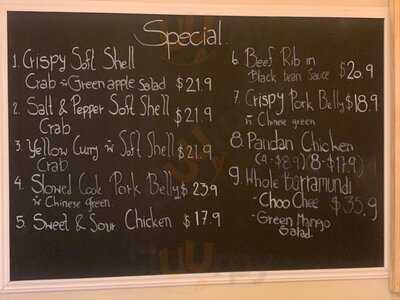 Special.
1. Crispy Soft Shell
Crab w Green apple Salad $21.9
2. Salt & Pepper Soft Shell
Crab $21.9
3. Yellow Curry w Soft Shell
Crab $21.9
4. Slowed Cook Pork Belly $23.9
w Chinese green.
5. Sweet & Sour Chicken $17.9
6. Beef Rib in
Black bean Sauce $20.9
7. Crispy Pork Belly $18.9
w Chinese green
8. Pandan Chicken
(4-$8.9) (8-$17.9)
9. Whole Barramundi
- Choo Chee $35.9
- Green Mango
Salad.